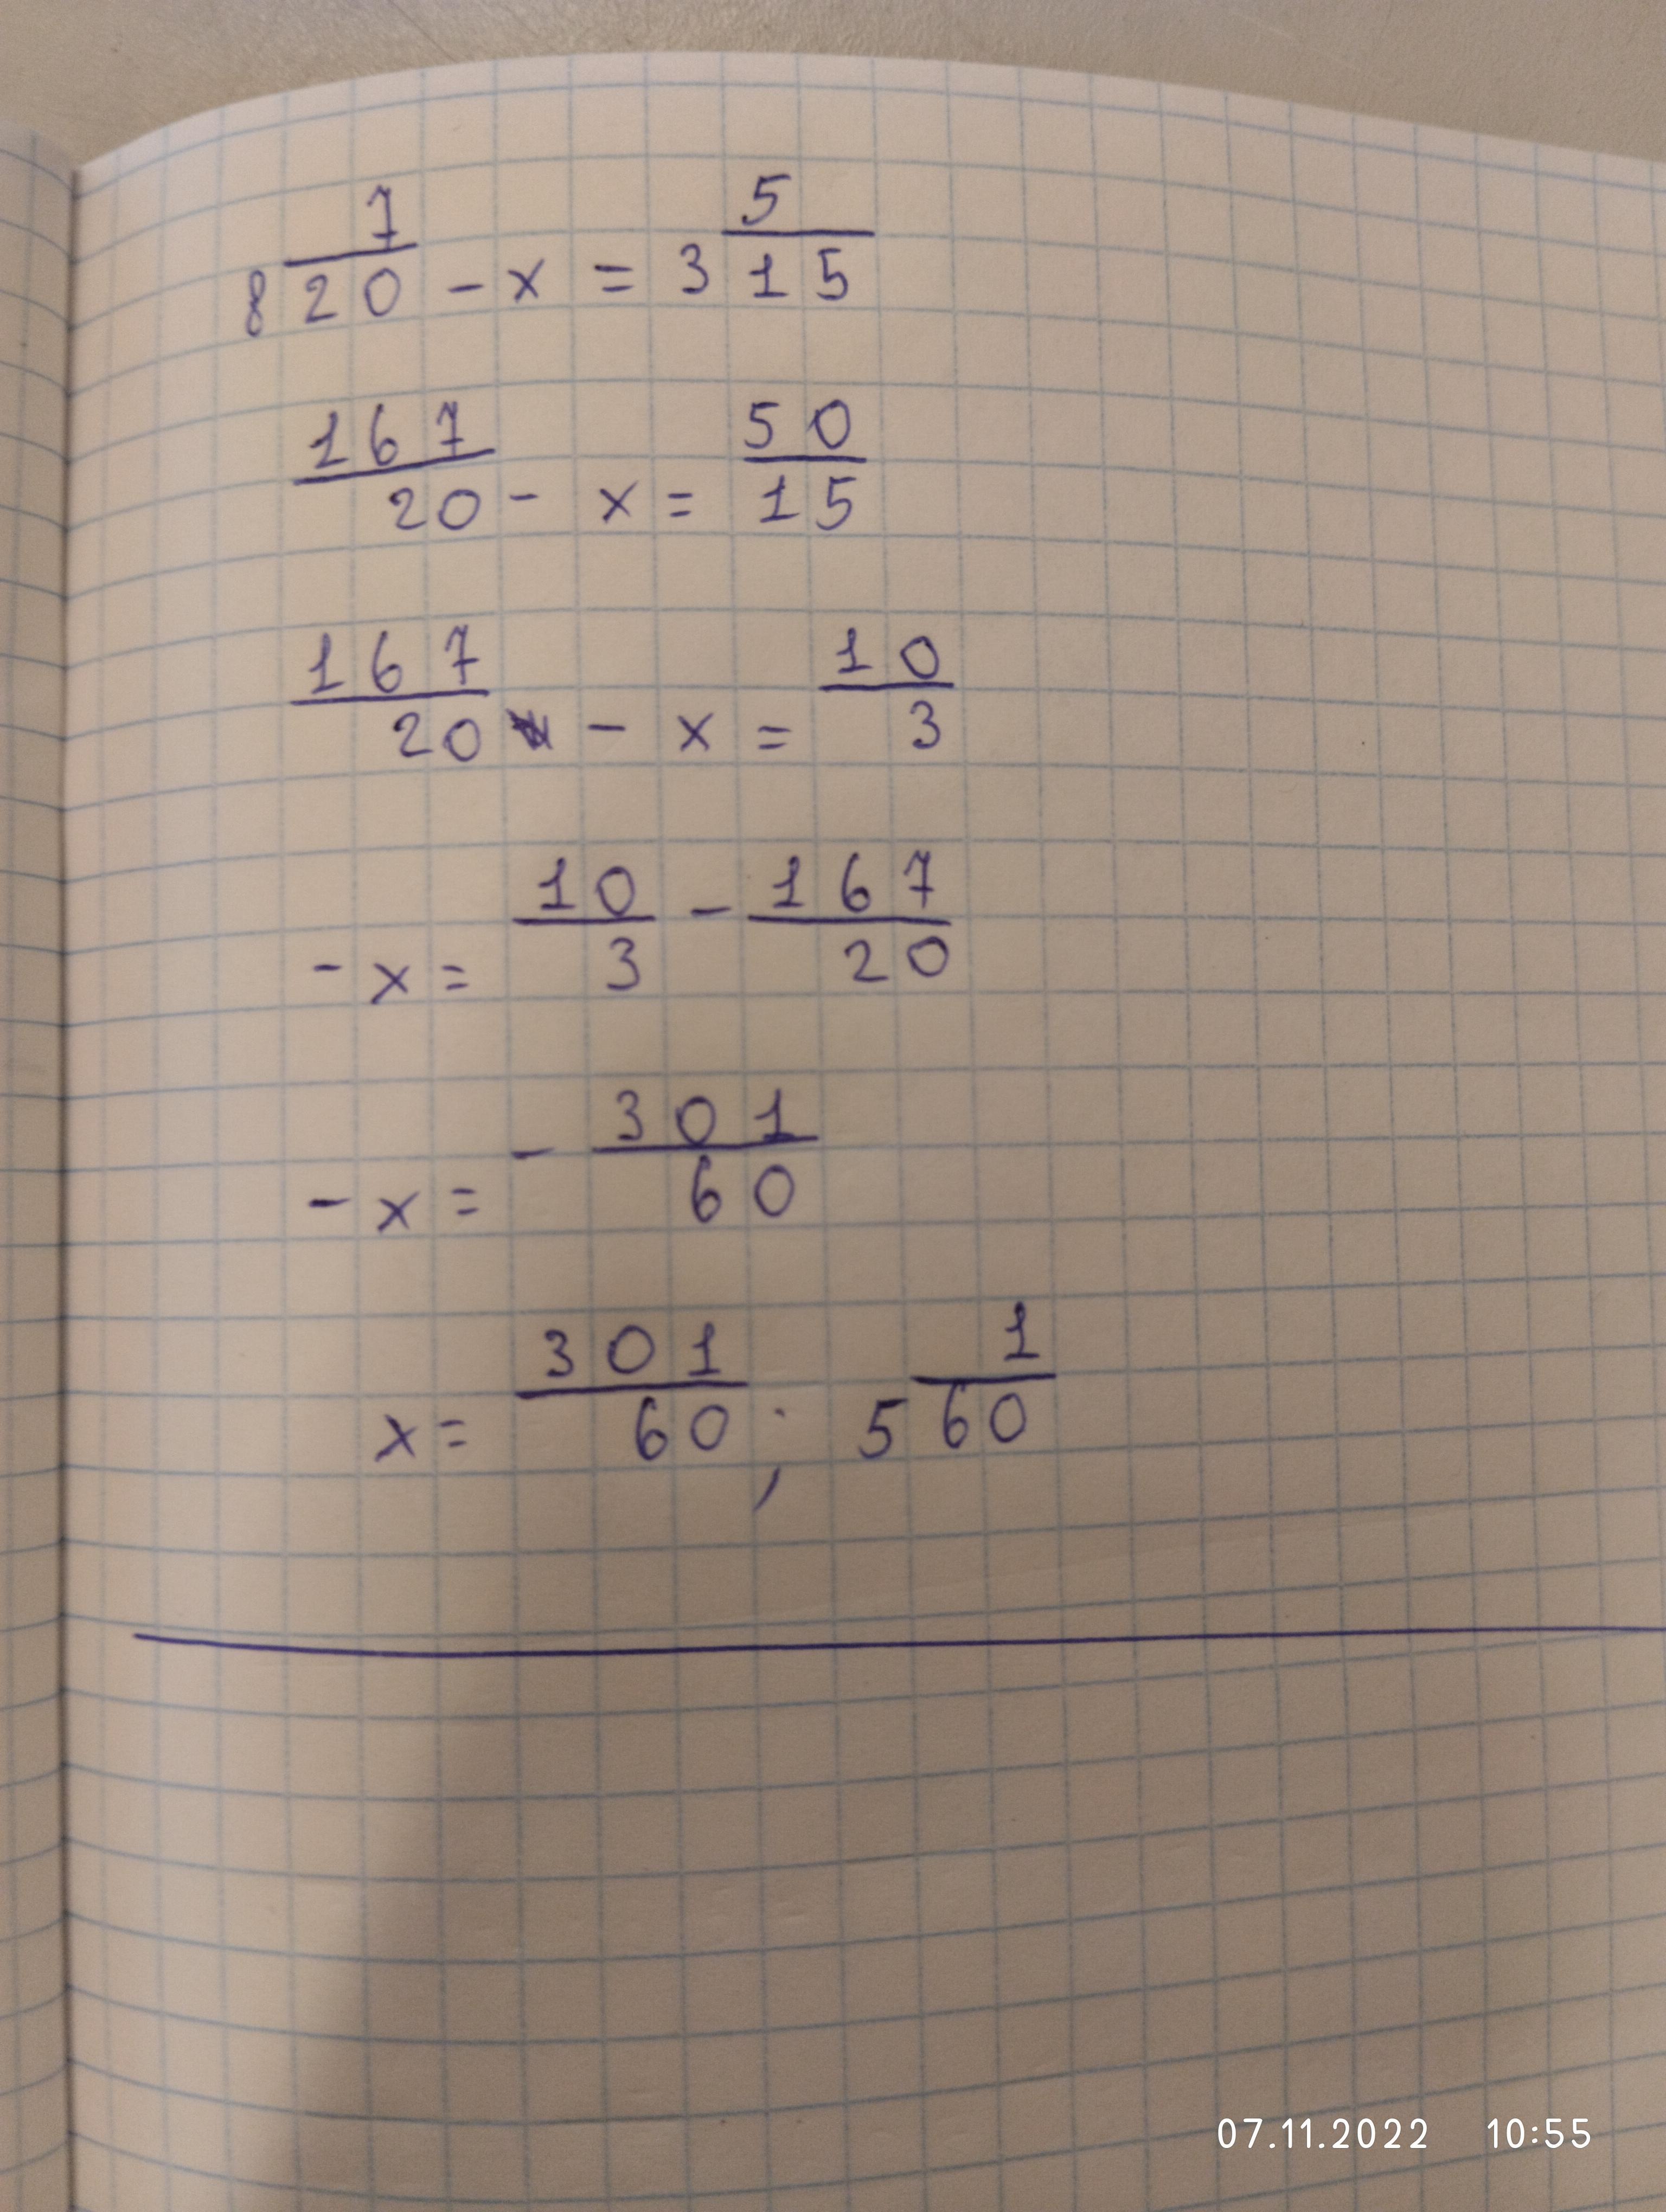 8 7/20 - x = 3 5/15
167/20 - x = 50/15
167/20 - x = 10/3
- x = 10/3 - 167/20
- x = - 301/60
x = 301/60 ; 5 1/60
07.11.2022 10:55